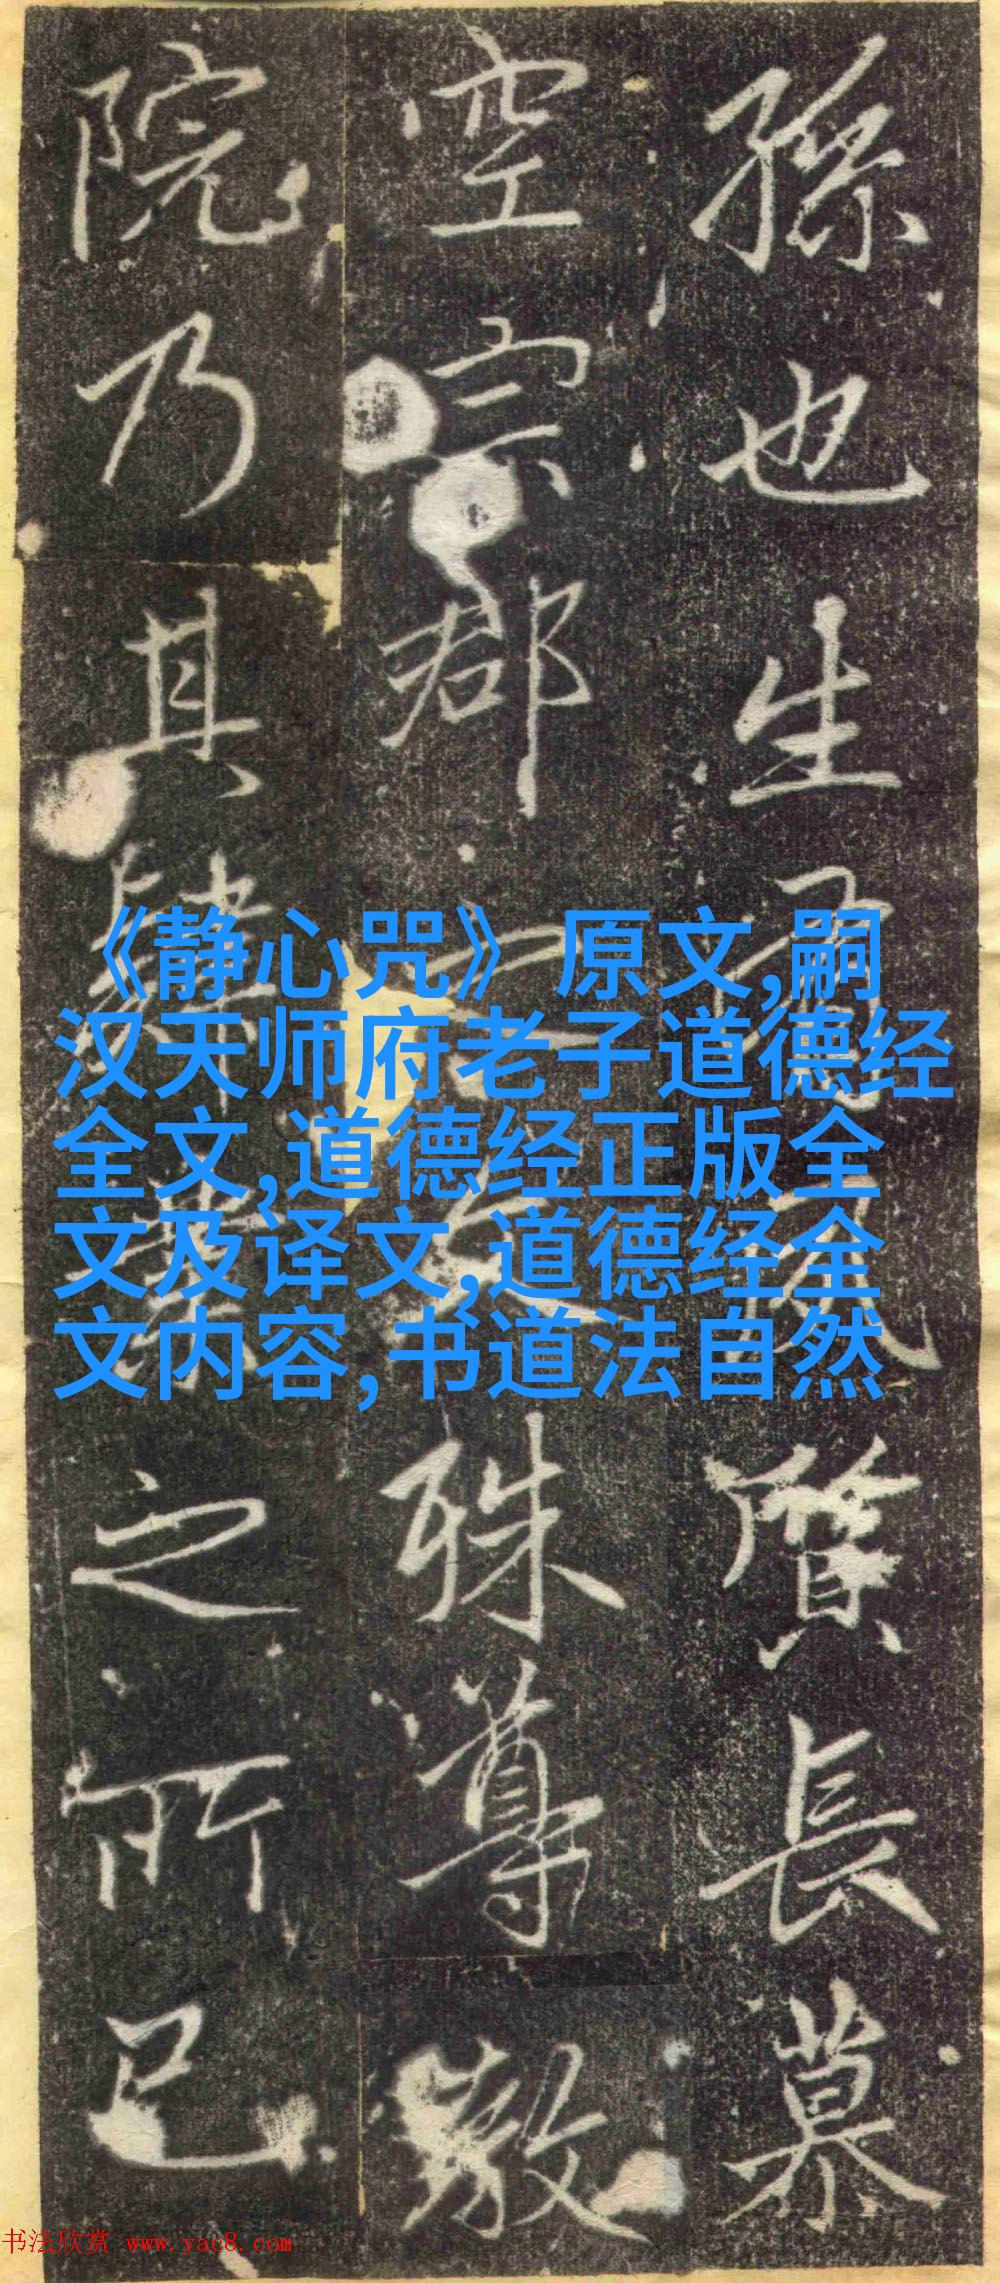 孫也生而風質長慕
空宗郡六殊尊敬
院乃其肆業之所已
《静心咒》原文,嗣
汉天师府老子道德经
全文,道德经正版全
文及译文,道德经全
文内容,书道法自然
书法欣赏 www.yac8.com